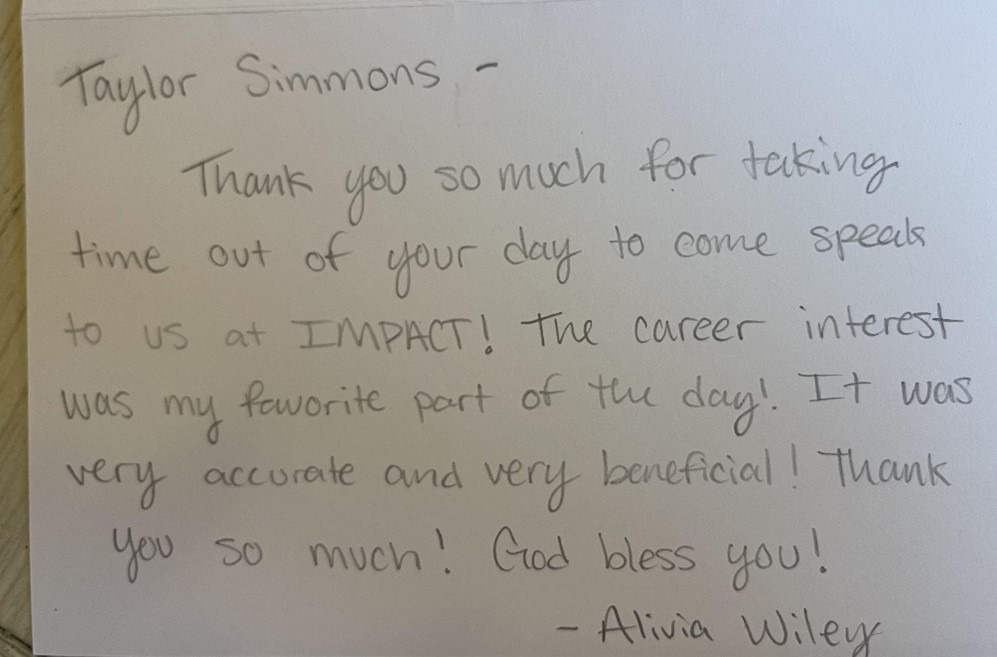 Taylor Simmons -
Thank you so much for taking
time out of your day to come speak
to us at IMPACT! The career interest
was my favorite part of the day! It was
very accurate and very beneficial! Thank
you so much! God bless you!
- Alivia Wiley